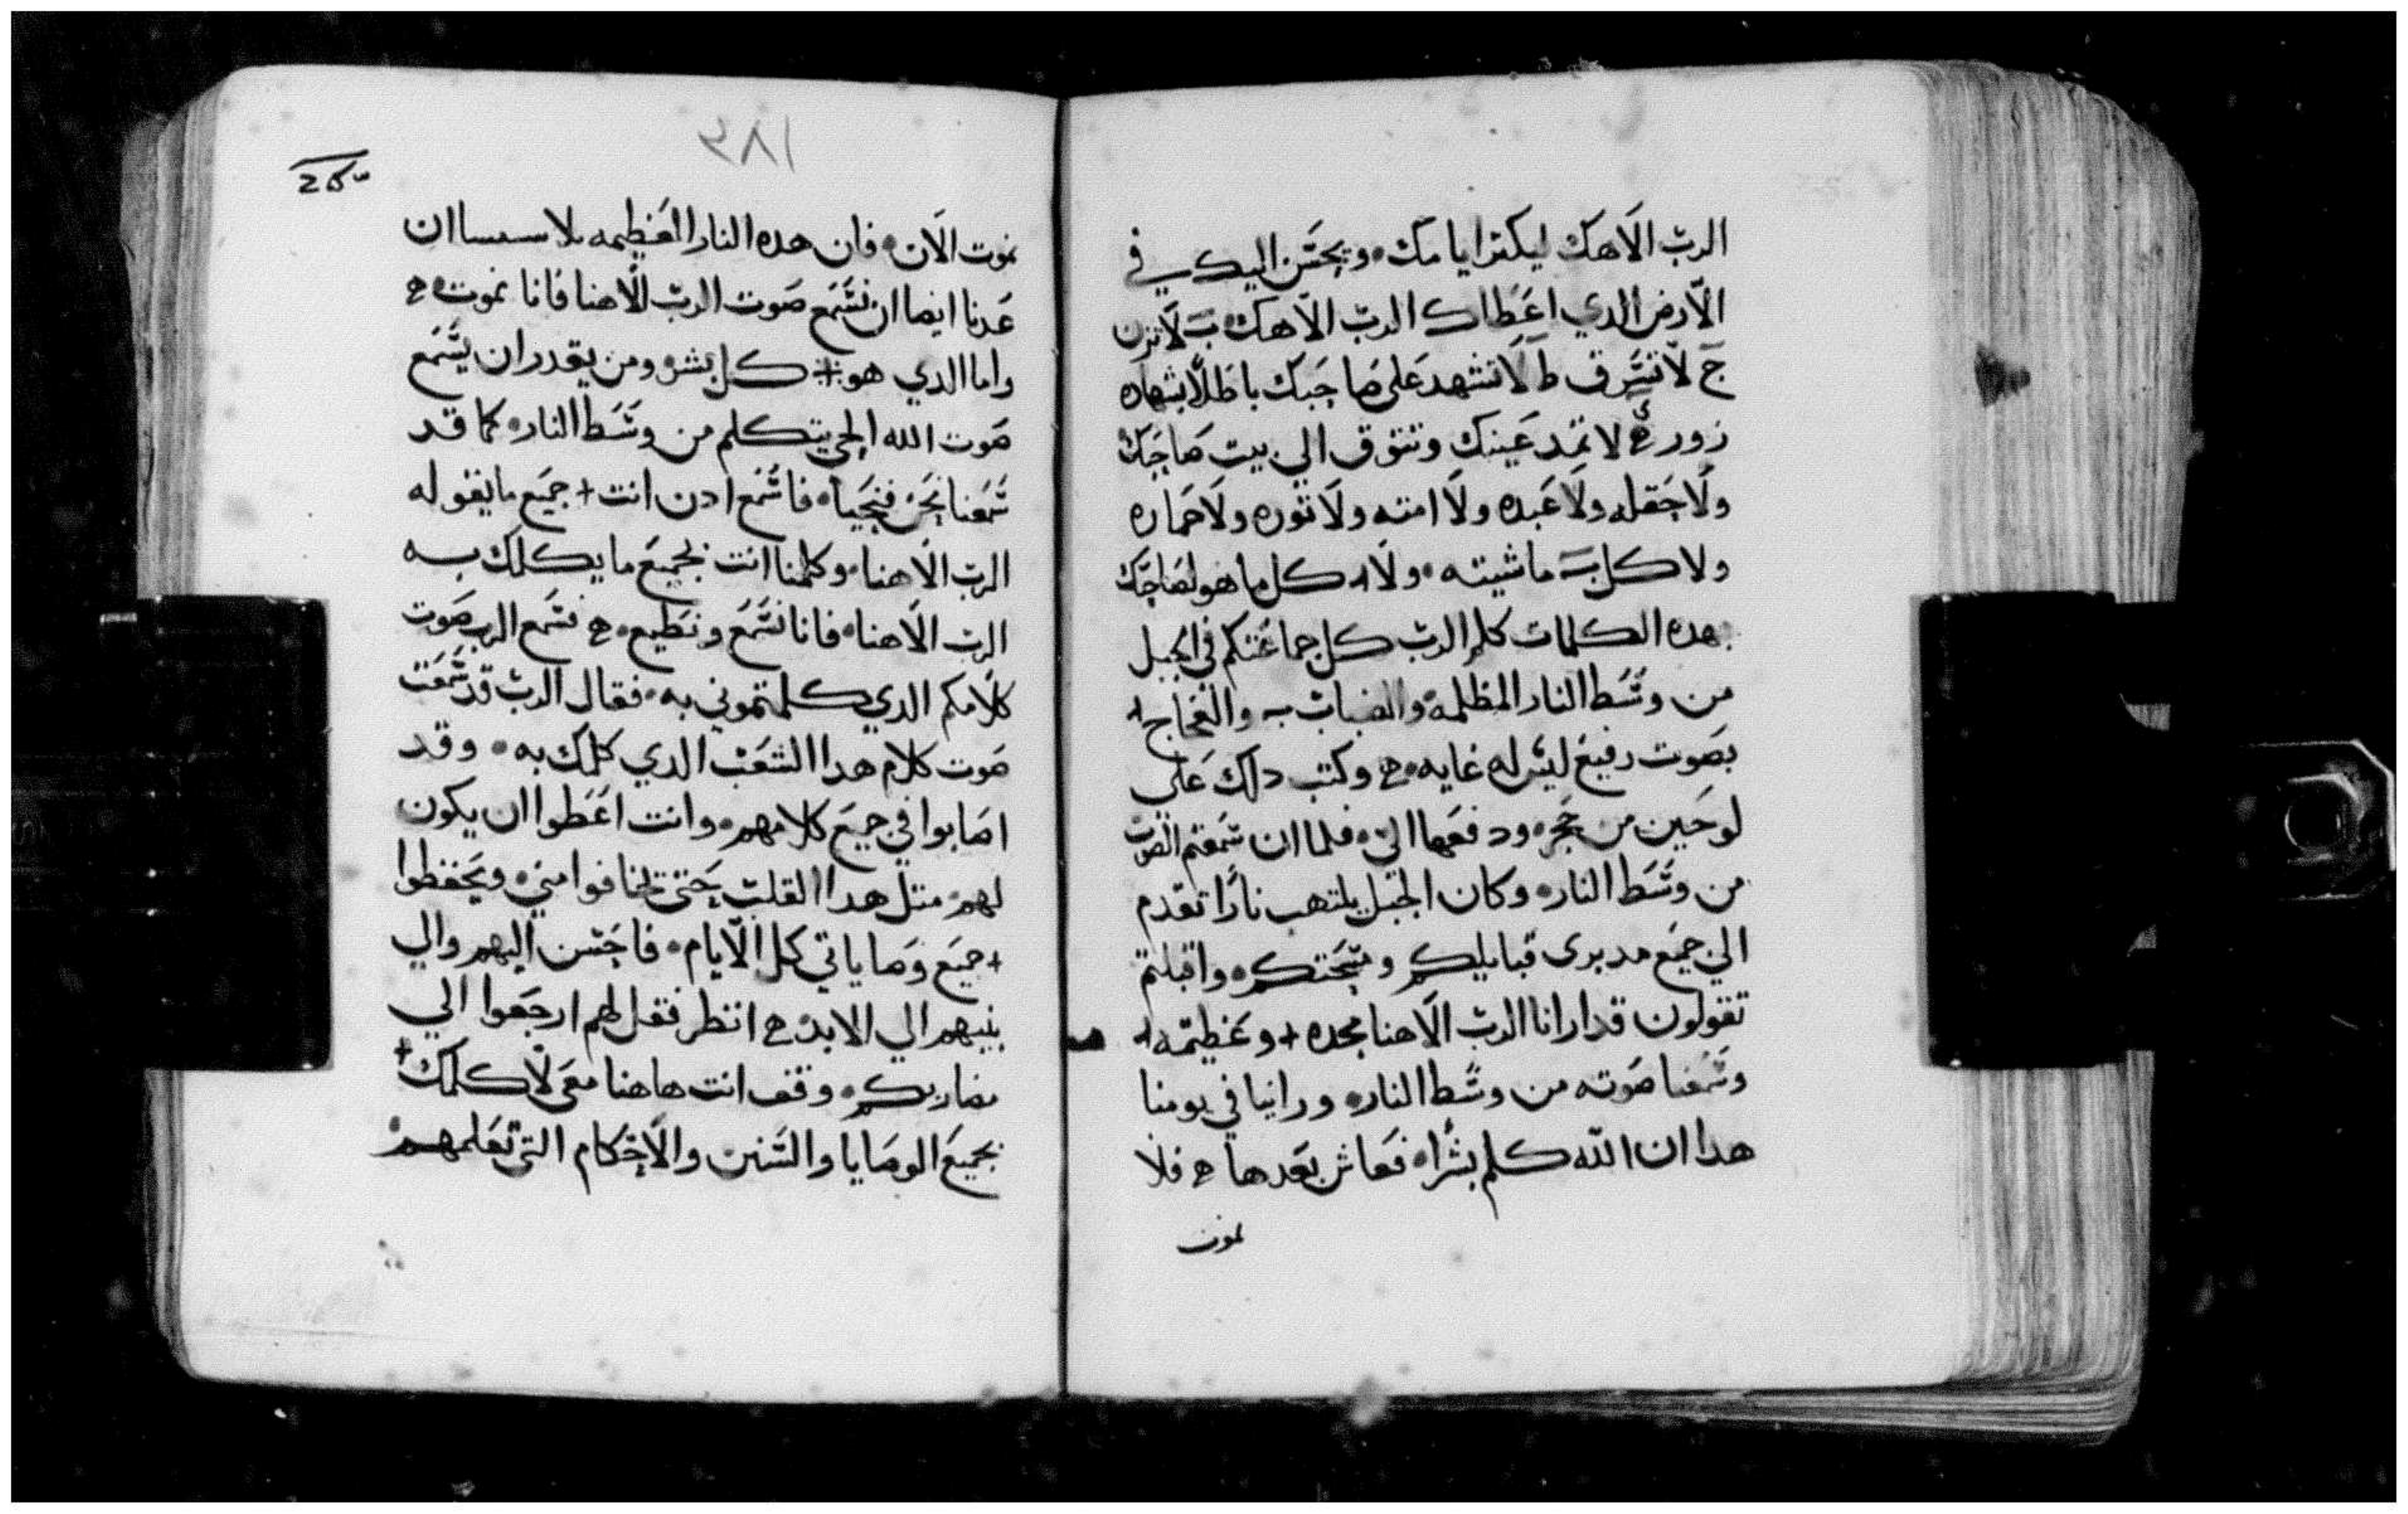 الرب الاهك ليكثر ايامك ويحسن اليك في
الارض الدي اعطاك الرب الاهك لا تزن
ح لا تسرق ط لا تشهد على صاحبك باطلا بشهاده
زور لا تمد عينك وتتوق الي بيت صاحبك
ولا حقله ولا عبده ولا امته ولا توره ولا حماره
ولا كل ماشيته ولا كل ما هو لصاحبك
هده الكلمات كلم الرب كل جماعتكم في الجبل
من وسط النار المظلمه والضباب والعجاج
بصوت رفيع ليس له غايه وكتب دلك على
لوحين من حجر ودفعهما الي فلما ان سمعتم الصوت
من وسط النار وكان الجبل يلتهب نارا تقدم
الي جميع مدبرى قبايلكم ومشيختكم واقبلتم
تقولون قد ارانا الرب الاهنا مجده + وعظمته
وسمعنا صوته من وسط النار وراينا في يومنا
هدا ان الله كلم بشرا فعاش بعدها فلا
نموت
١٨٤
نموت الان فان هده النار العظيمه ان
عدنا ايضا ان نسمع صوت الرب الاهنا فانا نموت
واما الدي هو كل بشر ومن يقدر ان يسمع
صوت الله الحي يتكلم من وسط النار كما قد
سمعنا نحن فنحيا فاسمع ادن انت + جميع ما يقوله
الرب الاهنا وكلمنا انت بجميع ما يكلمك به
الرب الاهنا فانا نسمع ونطيع فسمع الرب صوت
كلامكم الدي كلمتموني به فقال الرب قد سمعت
صوت كلام هدا الشعب الدي كلمك به وقد
اصابوا في جميع كلامهم وانت اعطوا ان يكون
لهم متل هدا القلب حتى يخافوا مني ويحفظوا
+ جميع وصاياتي كل الايام فاحسن اليهم والي
بنيهم الي الابد انظر فقل لهم ارجعوا الي
مضاربكم وقف انت هاهنا معي لاكلمك +
بجميع الوصايا والسنن والاحكام التي تعلمهم